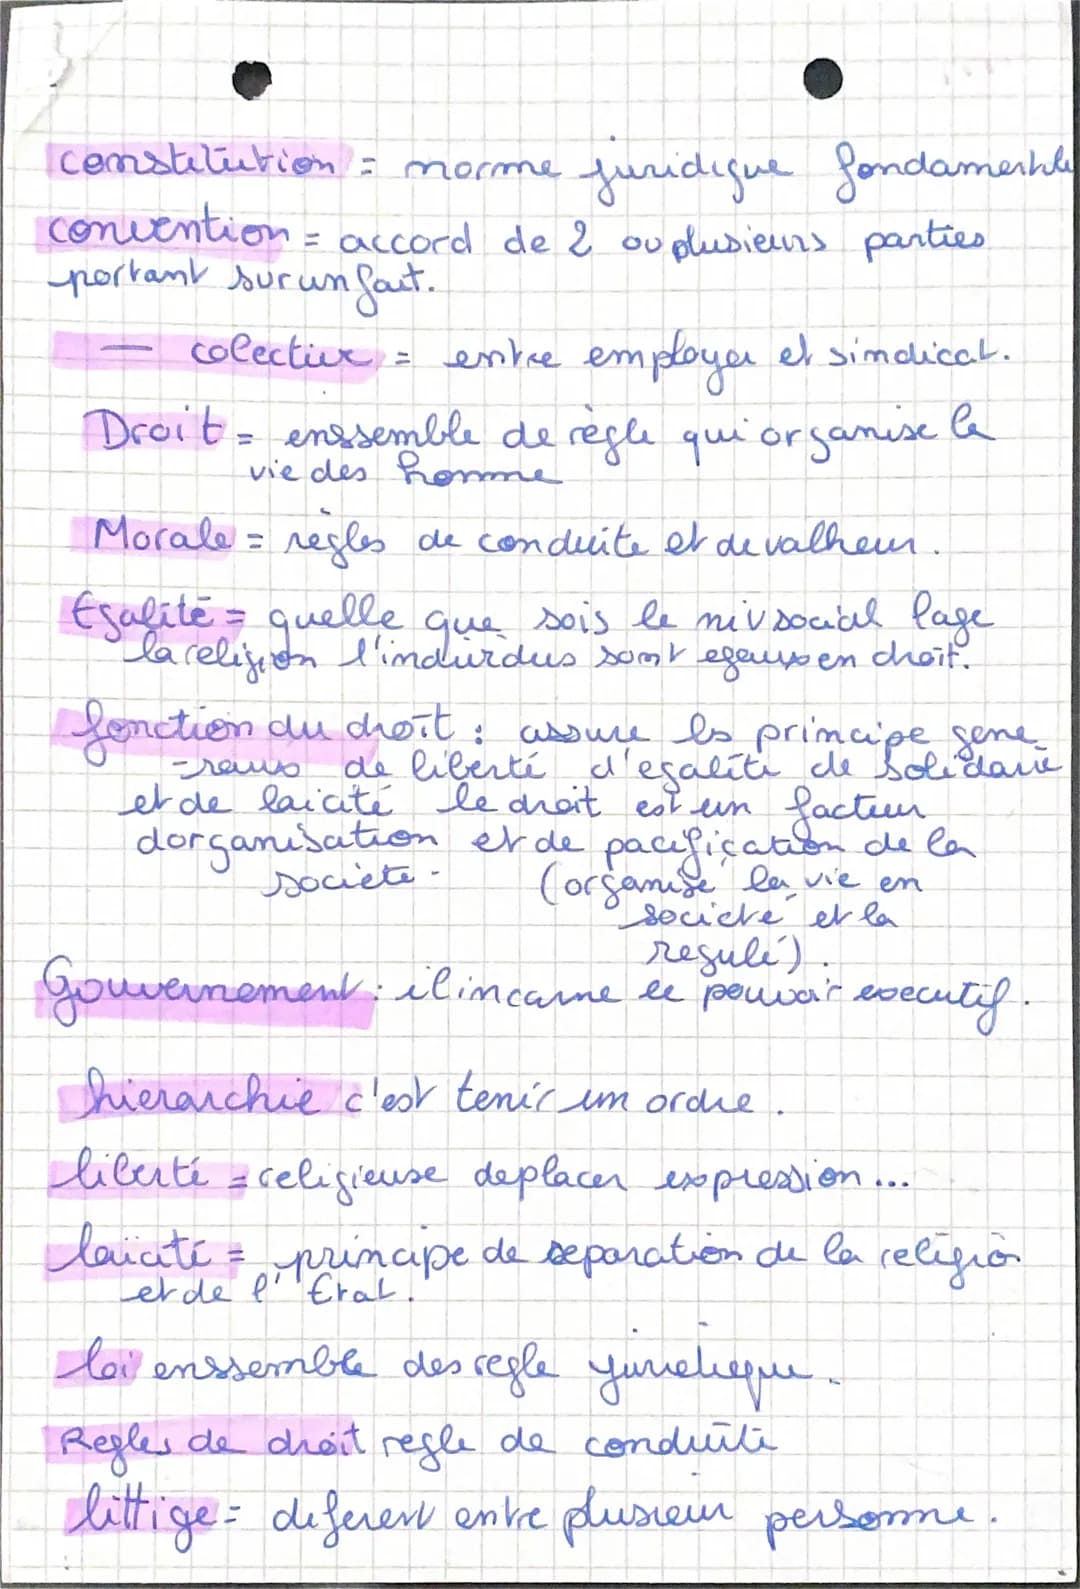 constitution = norme juridique fondamentale
convention = accord de 2 ou plusieurs parties
portant sur un fait.
— colective = entre employer et sindicat.
Droit = enssemble de règle qui organise la
vie des homme
Morale = règles de conduite et de valheur.
Egalité = quelle que sois le niv social l'age
la religion l'indivdus sont egaux en droit.
fonction du droit : assure les principe gene
-raux de liberté d'egalité de solidarie
et de laicité le droit est un facteur
dorganisation et de pacification de la
societe -
(organise la vie en
societé et la
regulé).
Gouvernement : il incarne le pouvoir executif.
hierarchie c'est tenir un ordre.
liberté = religieuse deplacer expression...
laïcité = principe de separation de la religion
et de l'Etat.
loi enssemble des regle juridique.
Regles de droit regle de conduite
littige = deferent entre plusieur personne.